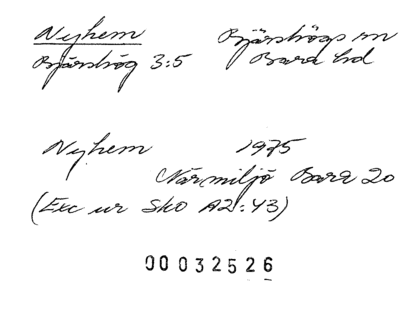 Nyhem
Bjärshögs sn
Bjärshög 3:5
Bara hd
Nyhem 1975
Närmiljö Bara 20
(Exc ur Sko A2:43)
00032526